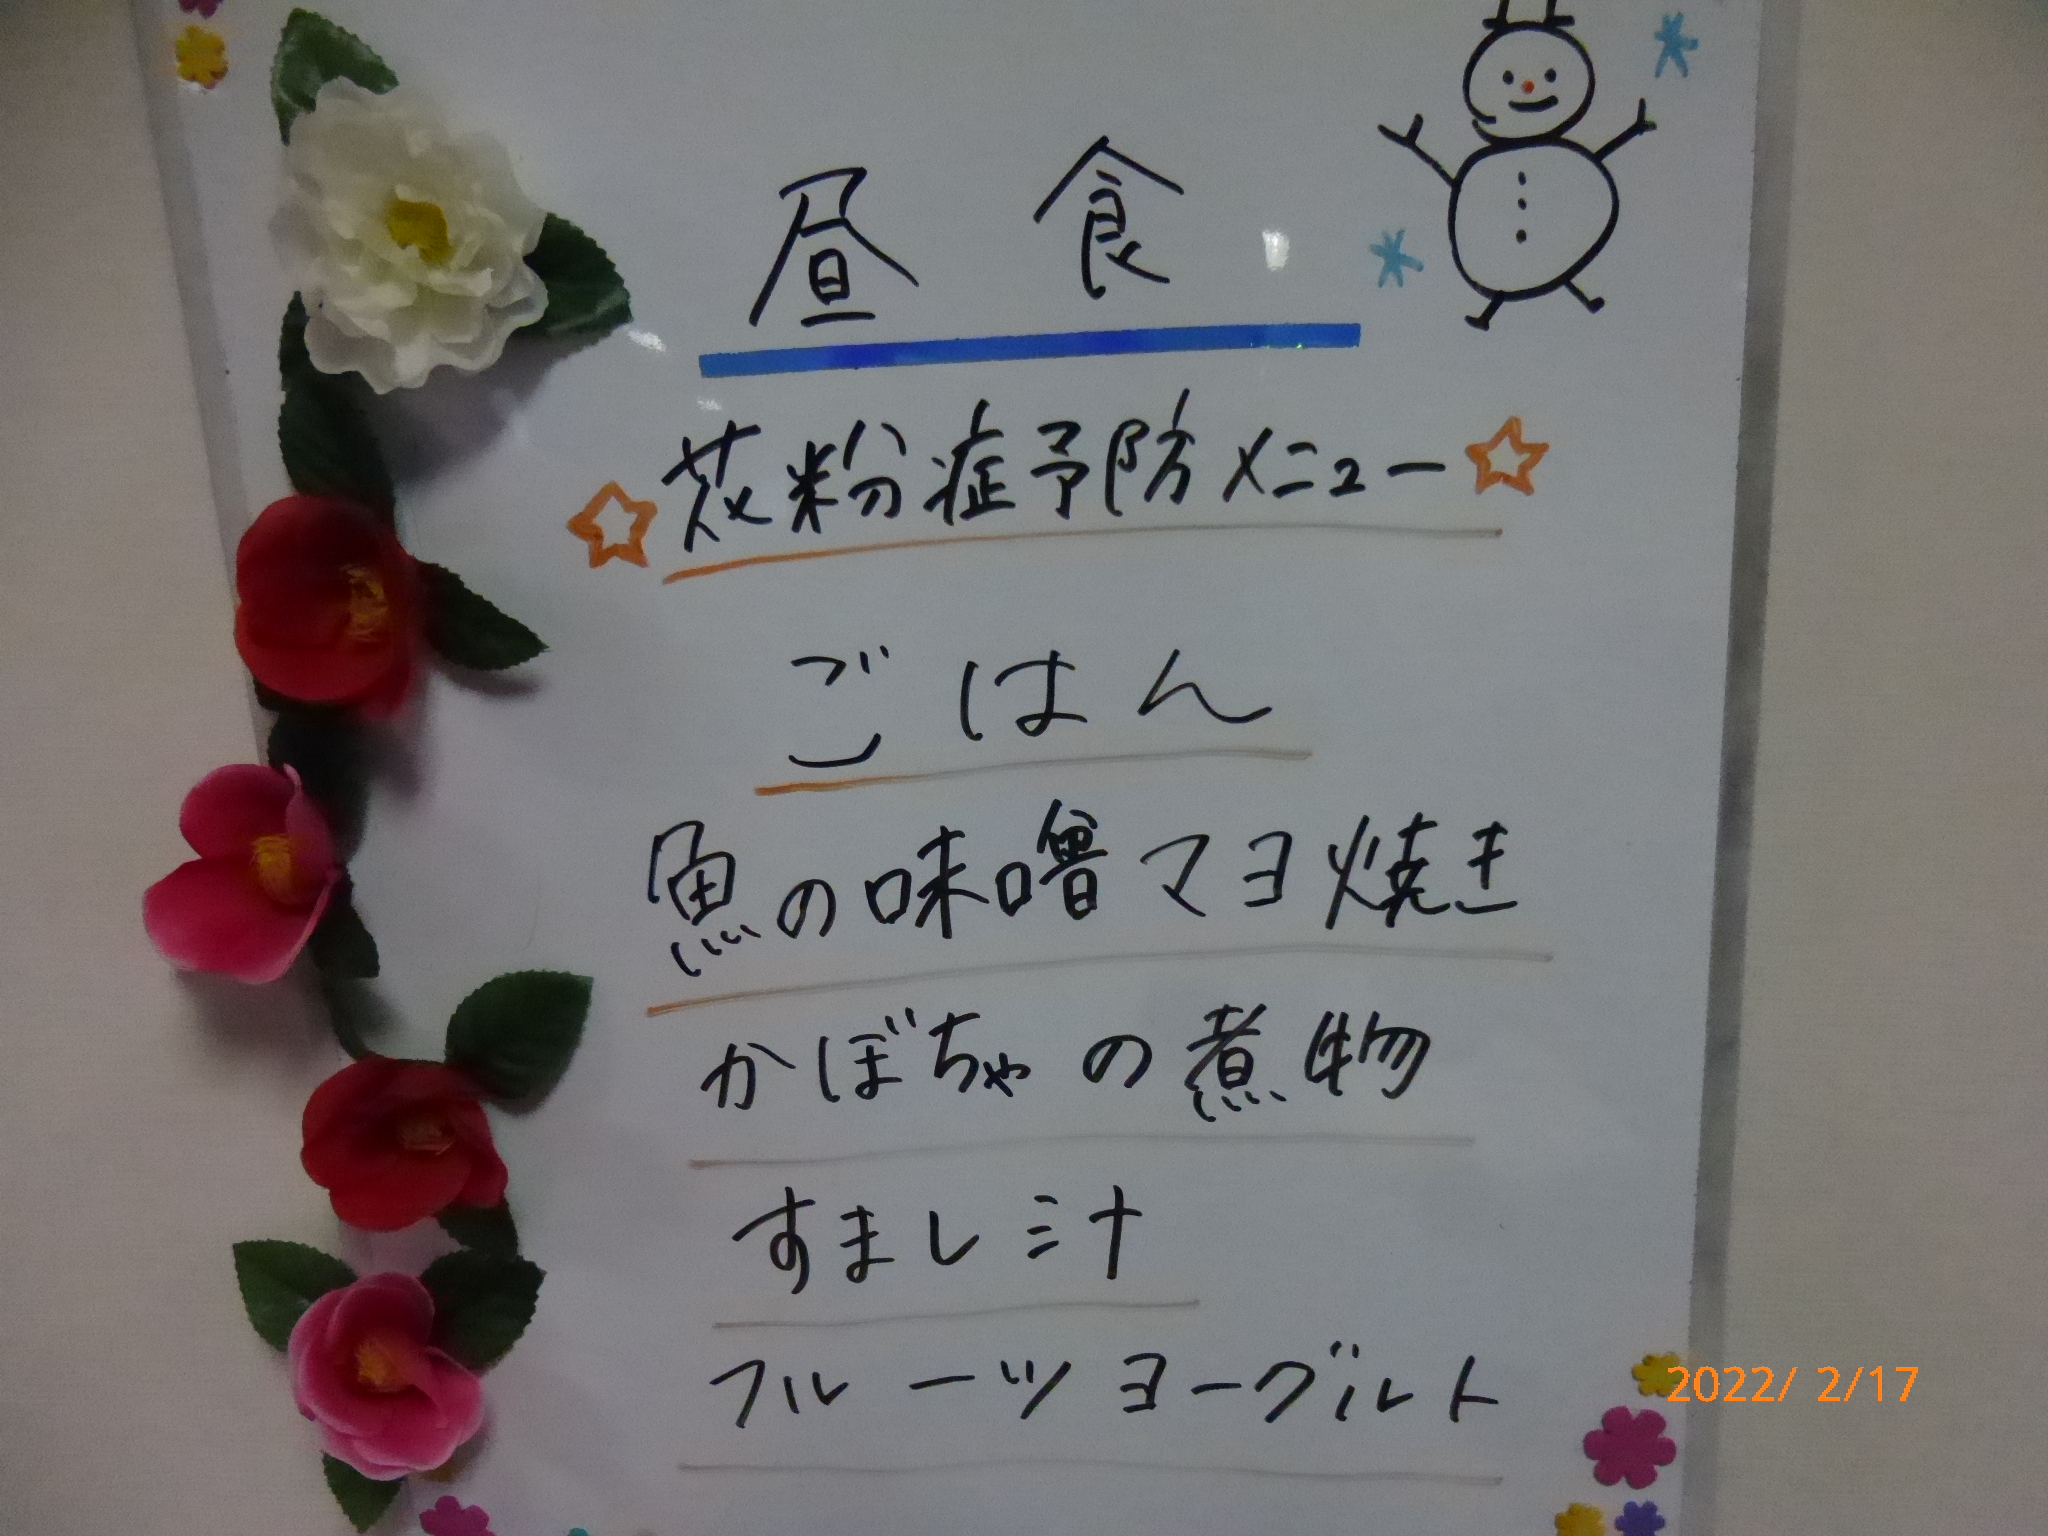 昼食
花粉症予防メニュー
ごはん
魚の味噌マヨ焼き
かぼちゃの煮物
すまし汁
フルーツヨーグルト
2022/ 2/17